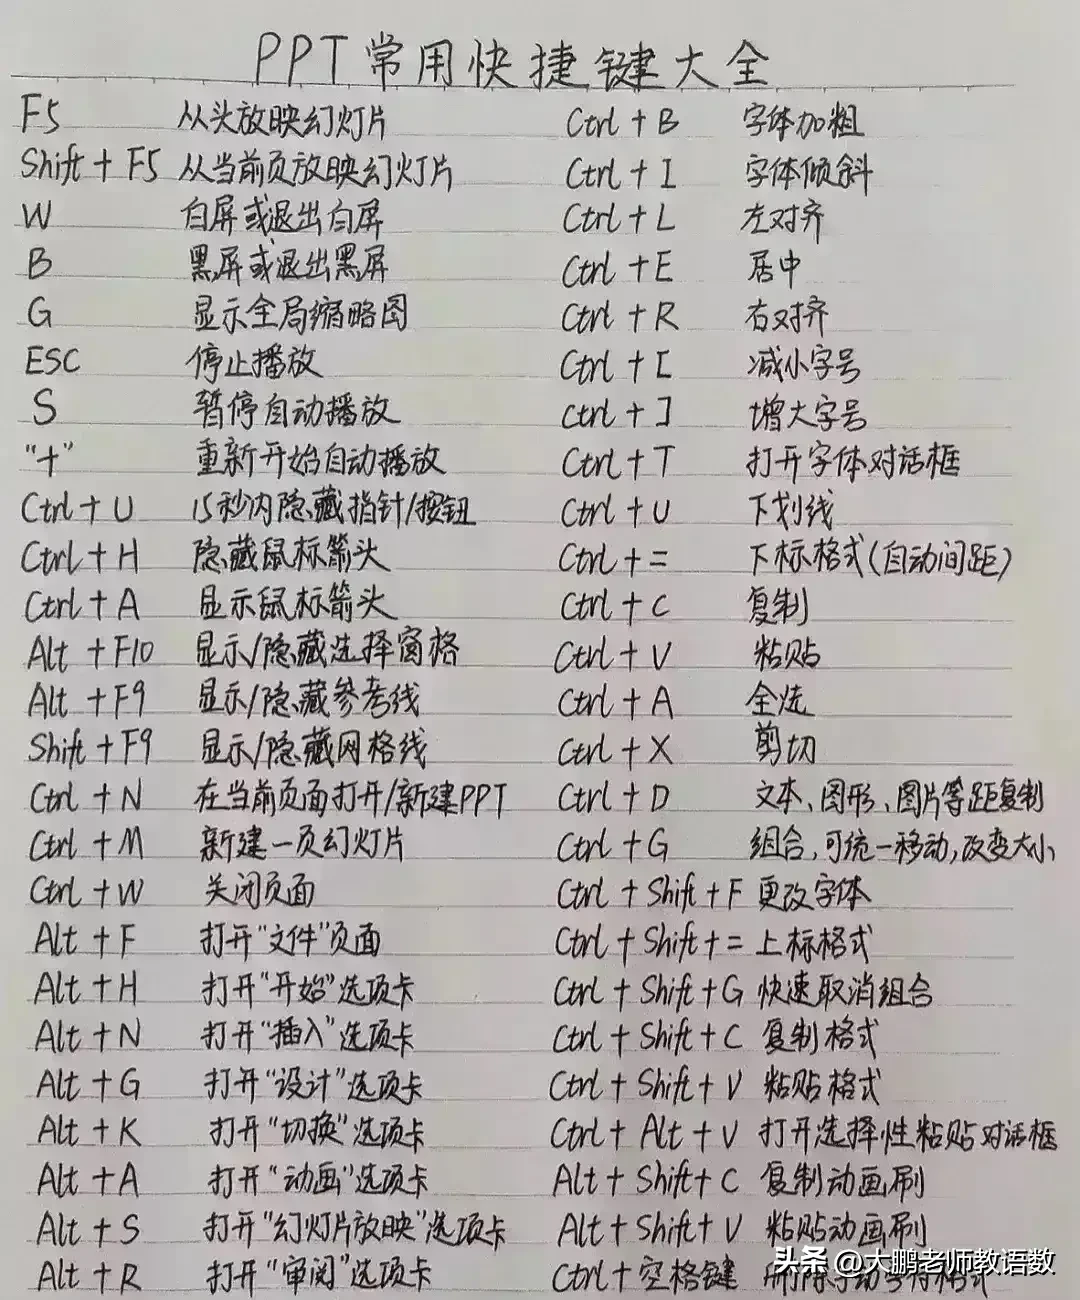 PPT常用快捷键大全
F5 从头放映幻灯片 Ctrl + B 字体加粗
Shift + F5 从当前页放映幻灯片 Ctrl + I 字体倾斜
W 白屏或退出白屏 Ctrl + L 左对齐
B 黑屏或退出黑屏 Ctrl + E 居中
G 显示全局缩略图 Ctrl + R 右对齐
ESC 停止播放 Ctrl + [ 减小字号
S 暂停自动播放 Ctrl + ] 增大字号
"+" 重新开始自动播放 Ctrl + T 打开字体对话框
Ctrl + U 15秒内隐藏指针/按钮 Ctrl + U 下划线
Ctrl + H 隐藏鼠标箭头 Ctrl + = 下标格式(自动间距)
Ctrl + A 显示鼠标箭头 Ctrl + C 复制
Alt + F10 显示/隐藏选择窗格 Ctrl + V 粘贴
Alt + F9 显示/隐藏参考线 Ctrl + A 全选
Shift + F9 显示/隐藏网格线 Ctrl + X 剪切
Ctrl + N 在当前页面打开/新建PPT Ctrl + D 文本、图形、图片等距复制
Ctrl + M 新建一页幻灯片 Ctrl + G 组合,可统一移动,改变大小
Ctrl + W 关闭页面 Ctrl + Shift + F 更改字体
Alt + F 打开"文件"页面 Ctrl + Shift + = 上标格式
Alt + H 打开"开始"选项卡 Ctrl + Shift + G 快速取消组合
Alt + N 打开"插入"选项卡 Ctrl + Shift + C 复制格式
Alt + G 打开"设计"选项卡 Ctrl + Shift + V 粘贴格式
Alt + K 打开"切换"选项卡 Ctrl + Alt + V 打开选择性粘贴对话框
Alt + A 打开"动画"选项卡 Alt + Shift + C 复制动画刷
Alt + S 打开"幻灯片放映"选项卡 Alt + Shift + V 粘贴动画刷
Alt + R 打开"审阅"选项卡 Ctrl + 空格键
头条 @大鹏老师教语数